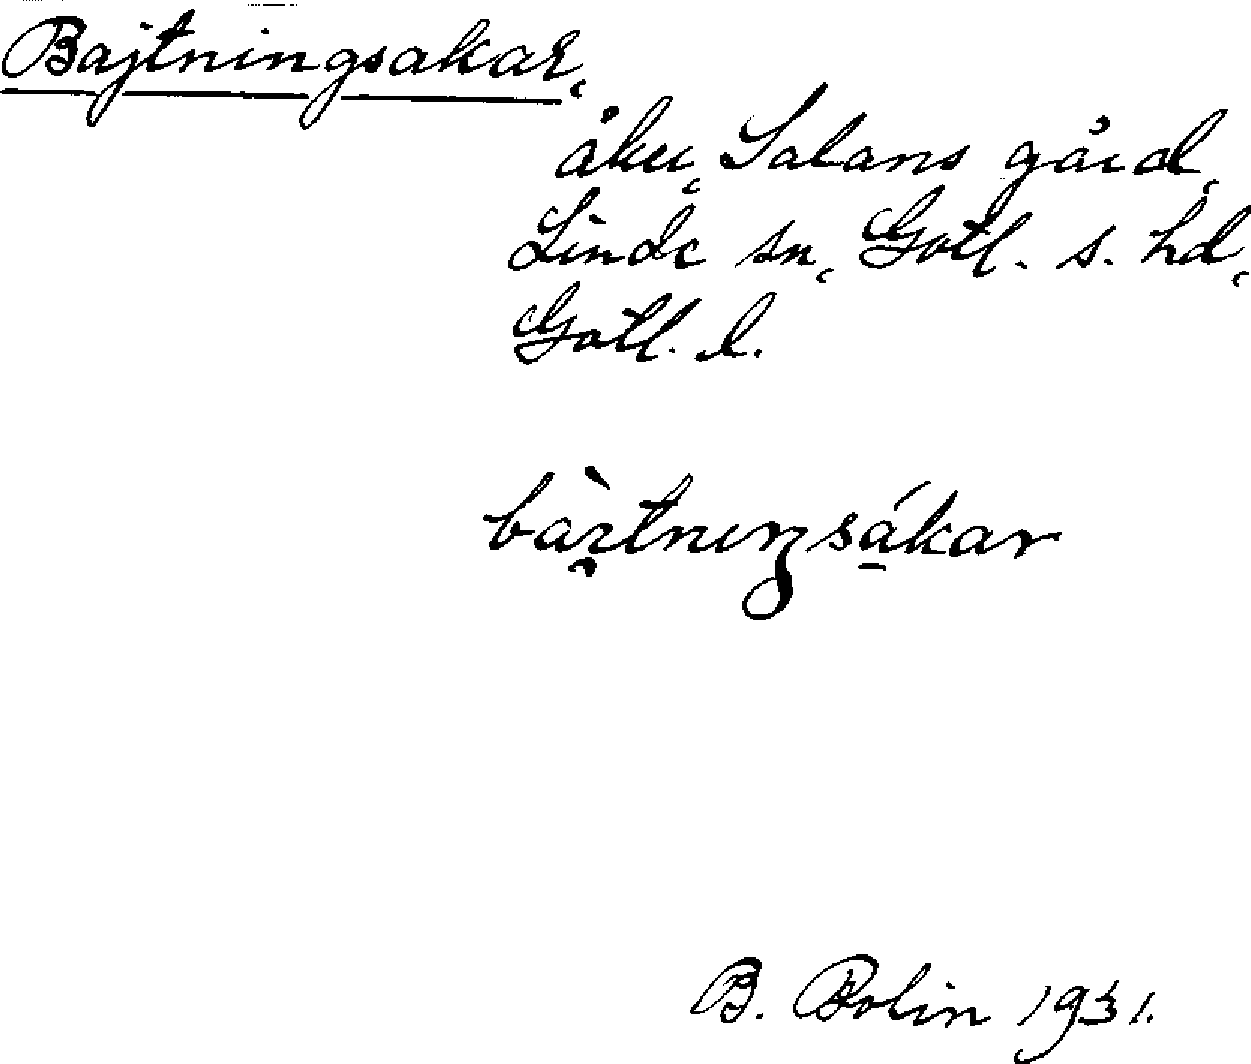 Bajtningsakar,
åker, Salans gård,
Linde sn, Gotl. s. hd,
Gotl. l.
bàı̯tnıŋsákar
B. Bolin 1931.